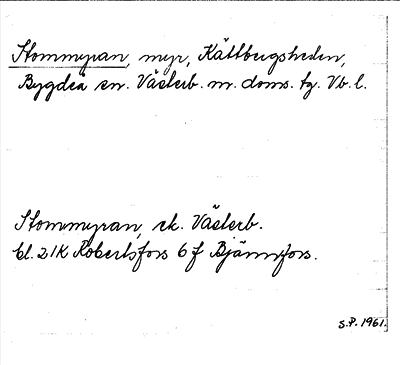 Stommyran, myr, Kättbergsheden,
Bygdeå sn. Västerb. n. doms. tg. Vb. l.
Stommyran, ek. Västerb.
bl. 21K Robertsfors 6 f Bjännfors.
S.P. 1961.